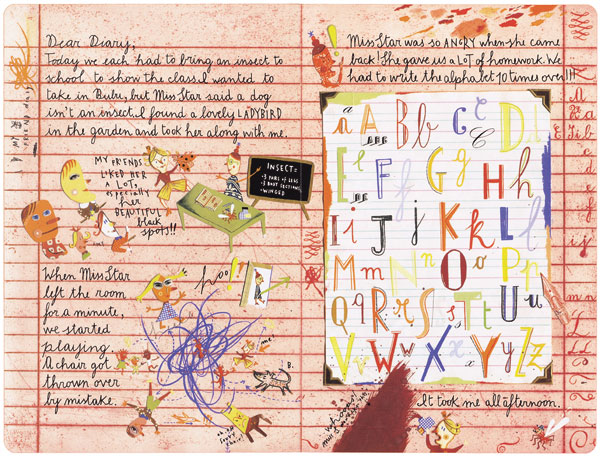 Dear Diary;
Today we each had to bring an insect to
school to show the class. I wanted to
take in Bubu, but Miss Star said a dog
isn't an insect. I found a lovely LADYBIRD
in the garden and took her along with me.
MY FRIENDS
LIKED HER
A LOT,
especially
her
BEAUTIFUL
black
spots!!
INSECT=
•3 PAIRS OF LEGS
•3 BODY SECTIONS
•WINGED
When Miss Star
left the room
for a minute,
we started
playing.
A chair got
thrown over
by mistake.
me
B.
Miss Star was so ANGRY when she came
back! She gave us a LOT of homework. We
had to write the alphabet 10 times over!!!
a A B b C c D d
E e F f G g H h
I i J j K k L l
M m N n O o P p
Q q R r S s T t U u
V v W w X x Y y Z z
whoops!
It took me all afternoon.